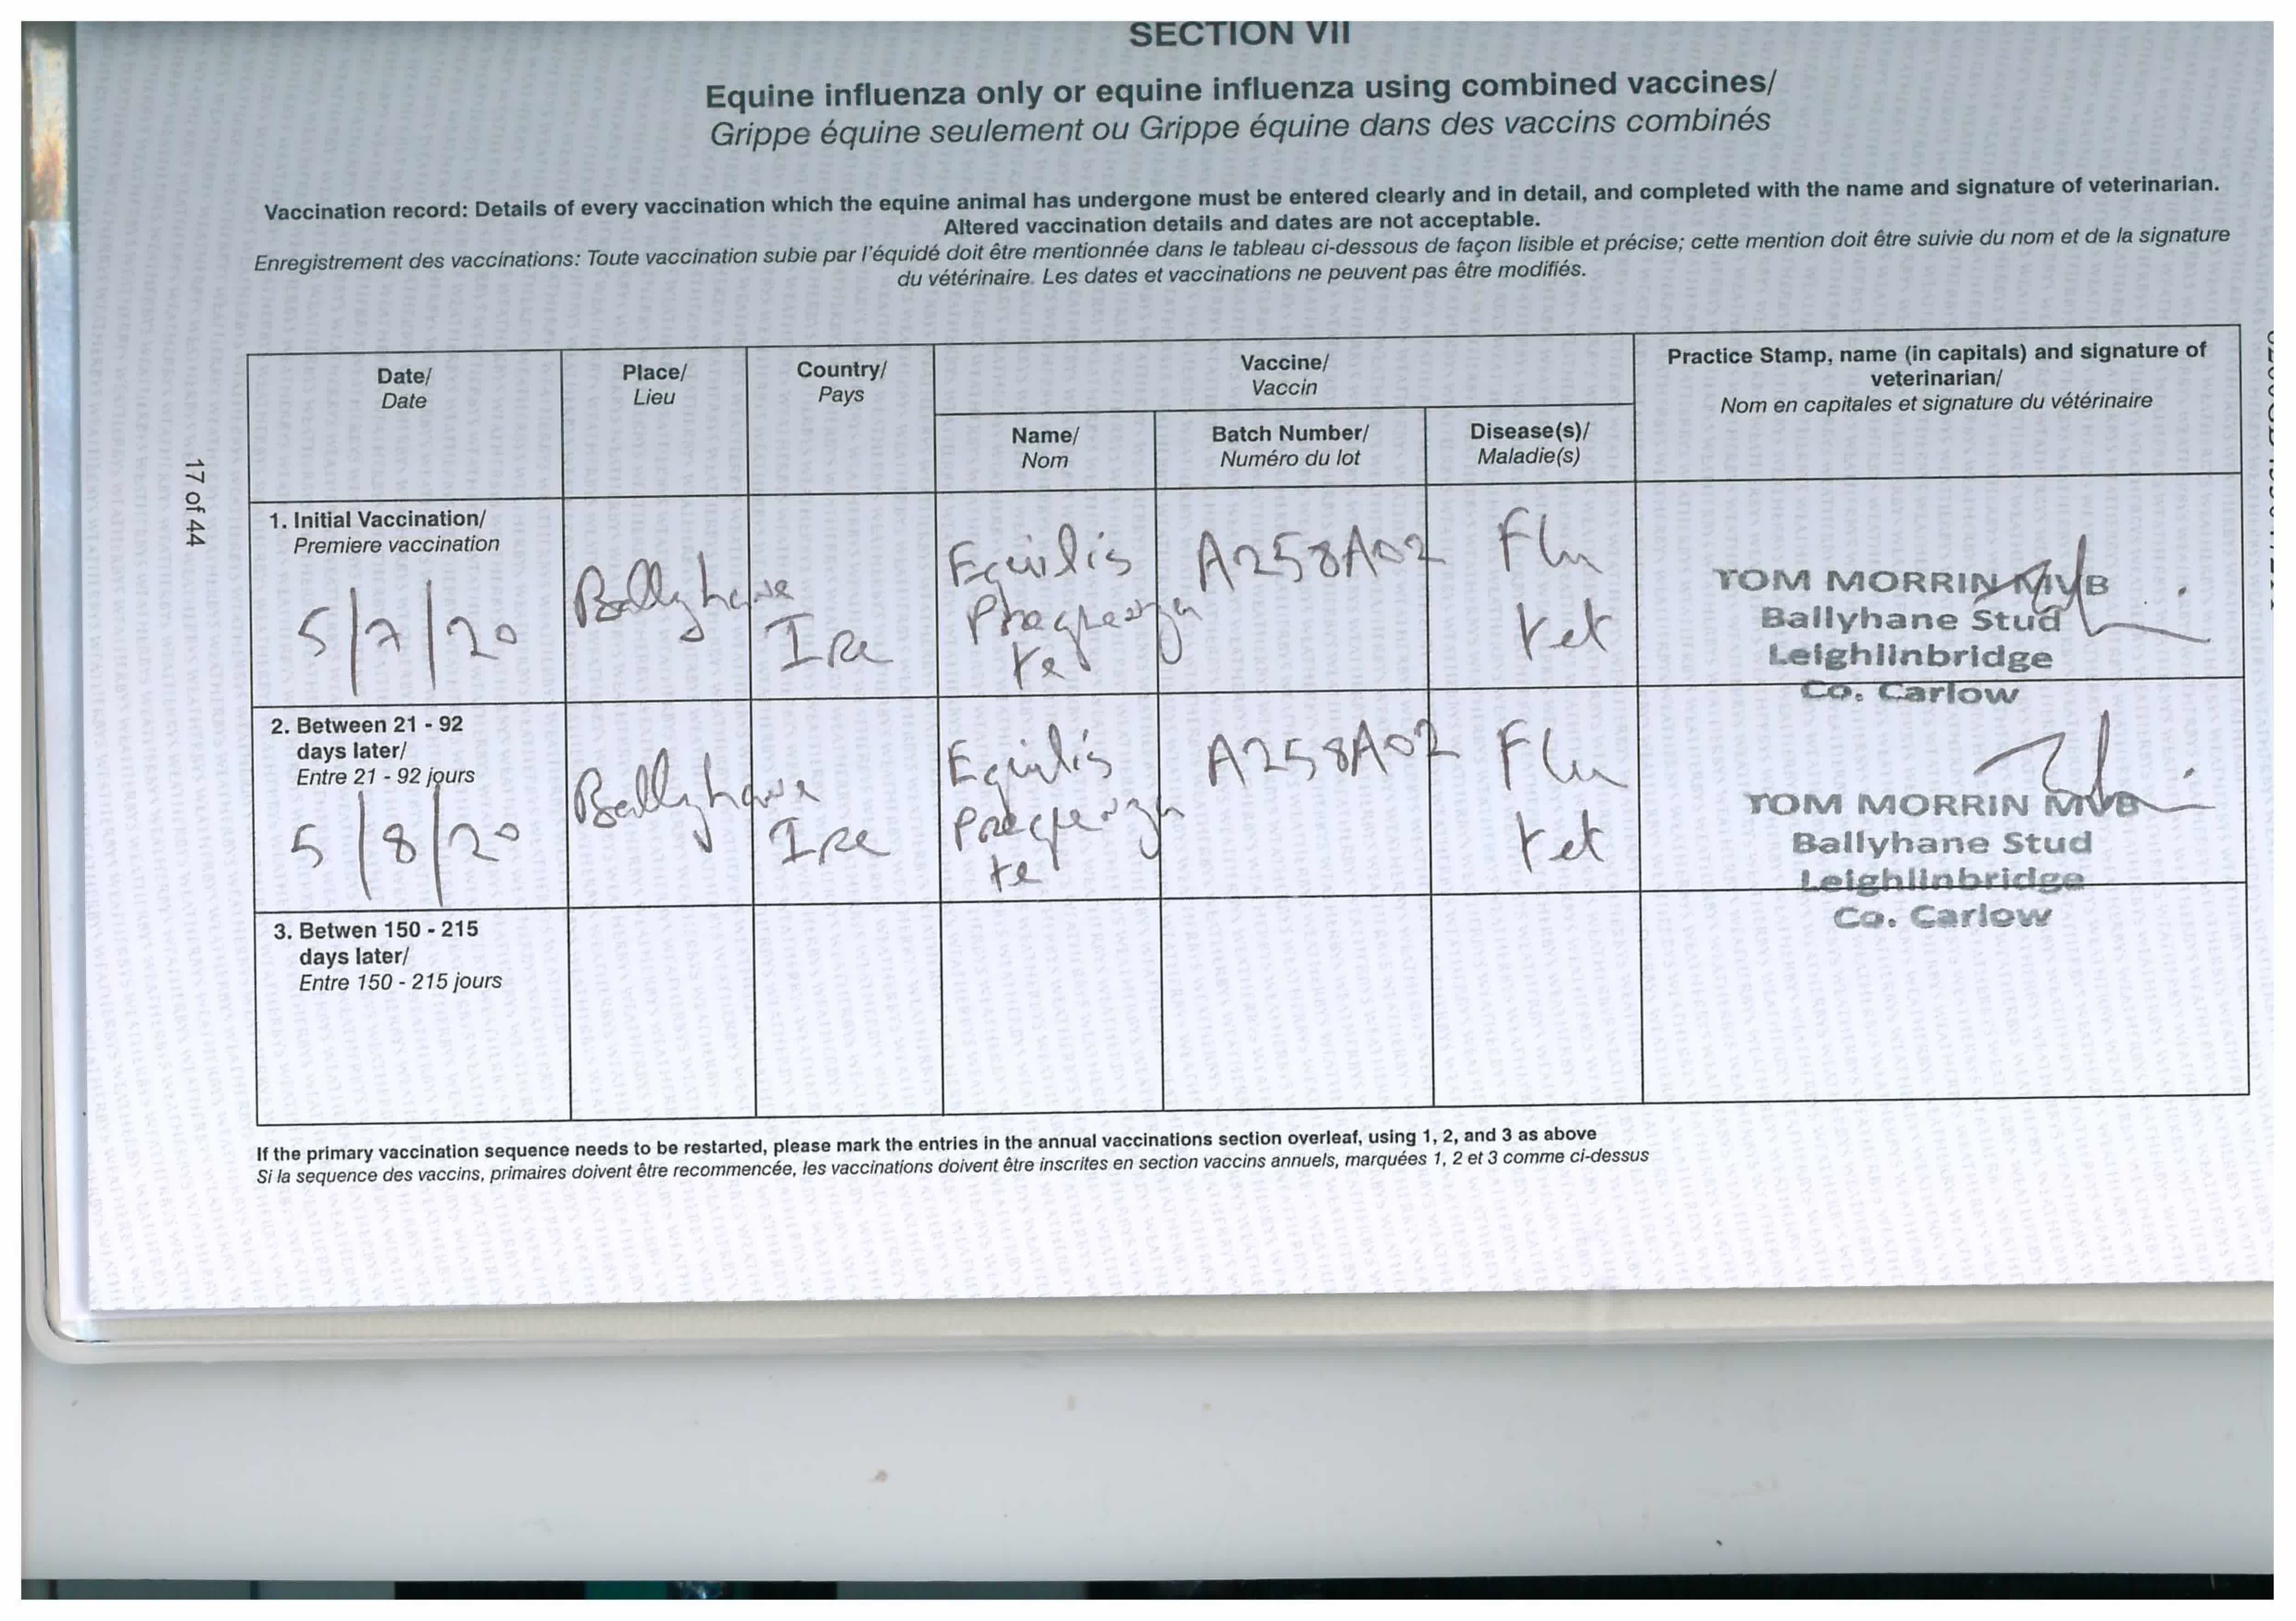 SECTION VII
Equine influenza only or equine influenza using combined vaccines/
Grippe équine seulement ou Grippe équine dans des vaccins combinés
Vaccination record: Details of every vaccination which the equine animal has undergone must be entered clearly and in detail, and completed with the name and signature of veterinarian.
Altered vaccination details and dates are not acceptable.
Enregistrement des vaccinations: Toute vaccination subie par l'équidé doit être mentionnée dans le tableau ci-dessous de façon lisible et précise; cette mention doit être suivie du nom et de la signature
du vétérinaire. Les dates et vaccinations ne peuvent pas être modifiés.
17 of 44
Date/
Date
Place/
Lieu
Country/
Pays
Vaccine/
Vaccin
Name/
Nom
Batch Number/
Numéro du lot
Disease(s)/
Maladie(s)
Practice Stamp, name (in capitals) and signature of
veterinarian/
Nom en capitales et signature du vétérinaire
1. Initial Vaccination/
Premiere vaccination
5/7/20
Ballyhane
Ire
Equilis
te
A258A02
Flu
tet
TOM MORRIN MVB
Ballyhane Stud
Leighlinbridge
Co. Carlow
2. Between 21 - 92
days later/
Entre 21 - 92 jours
5/8/20
Ballyhane
Ire
Equilis
te
A258A02
Flu
tet
TOM MORRIN MVB
Ballyhane Stud
Leighlinbridge
Co. Carlow
3. Betwen 150 - 215
days later/
Entre 150 - 215 jours
If the primary vaccination sequence needs to be restarted, please mark the entries in the annual vaccinations section overleaf, using 1, 2, and 3 as above
Si la sequence des vaccins, primaires doivent être recommencée, les vaccinations doivent être inscrites en section vaccins annuels, marquées 1, 2 et 3 comme ci-dessus